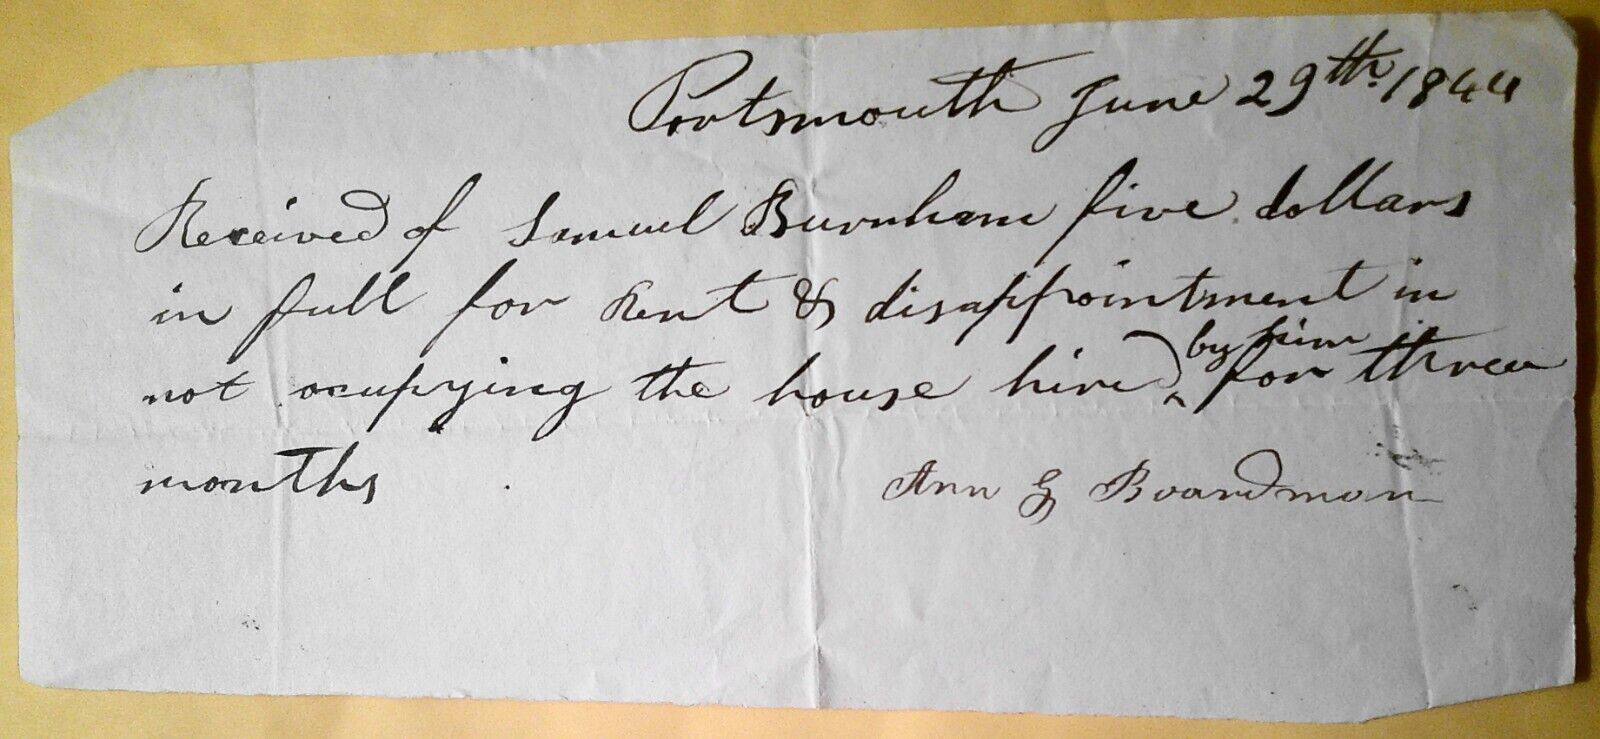 Portsmouth June 29th. 1844
Received of Samuel Burnham five dollars
in full for Rent & disappointment in
not occupying the house hired ^by him for three
months
Ann G Boardman